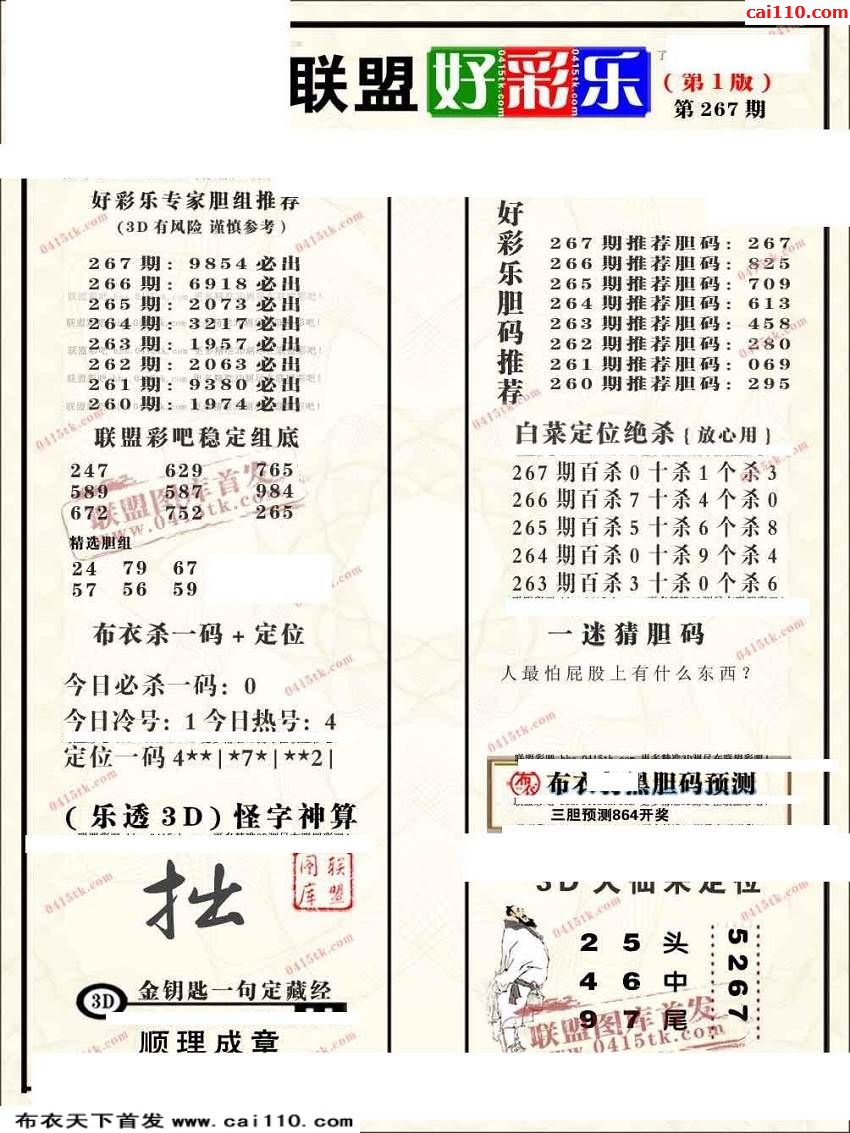 cai110.com
联盟好彩乐
(第1版)
第267期
好彩乐专家胆组推荐
(3D有风险 谨慎参考)
267期: 9854必出
266期: 6918必出
265期: 2073必出
264期: 3217必出
263期: 1957必出
262期: 2063必出
261期: 9380必出
260期: 1974必出
联盟彩吧稳定组底
247 629 765
589 587 984
672 752 265
精选胆组
24 79 67
57 56 59
布衣杀一码+定位
今日必杀一码: 0
今日冷号: 1 今日热号: 4
定位一码 4**|*7*|**2|
(乐透3D)怪字神算
拙
联盟图库
3D 金钥匙一句定藏经
顺理成章
好彩乐胆码推荐
267期推荐胆码: 267
266期推荐胆码: 825
265期推荐胆码: 709
264期推荐胆码: 613
263期推荐胆码: 458
262期推荐胆码: 280
261期推荐胆码: 069
260期推荐胆码: 295
白菜定位绝杀{放心用}
267期百杀0十杀1个杀3
266期百杀7十杀4个杀0
265期百杀5十杀6个杀8
264期百杀0十杀9个杀4
263期百杀3十杀0个杀6
一迷猜胆码
人最怕屁股上有什么东西?
布衣 胆码预测
三胆预测864开奖
2 5 头
4 6 中
9 7 尾
5267
联盟图库首发
www.0415tk.com
联盟图库首发
www.0415tk.com
0415tk.com
布衣天下首发 www.cai110.com